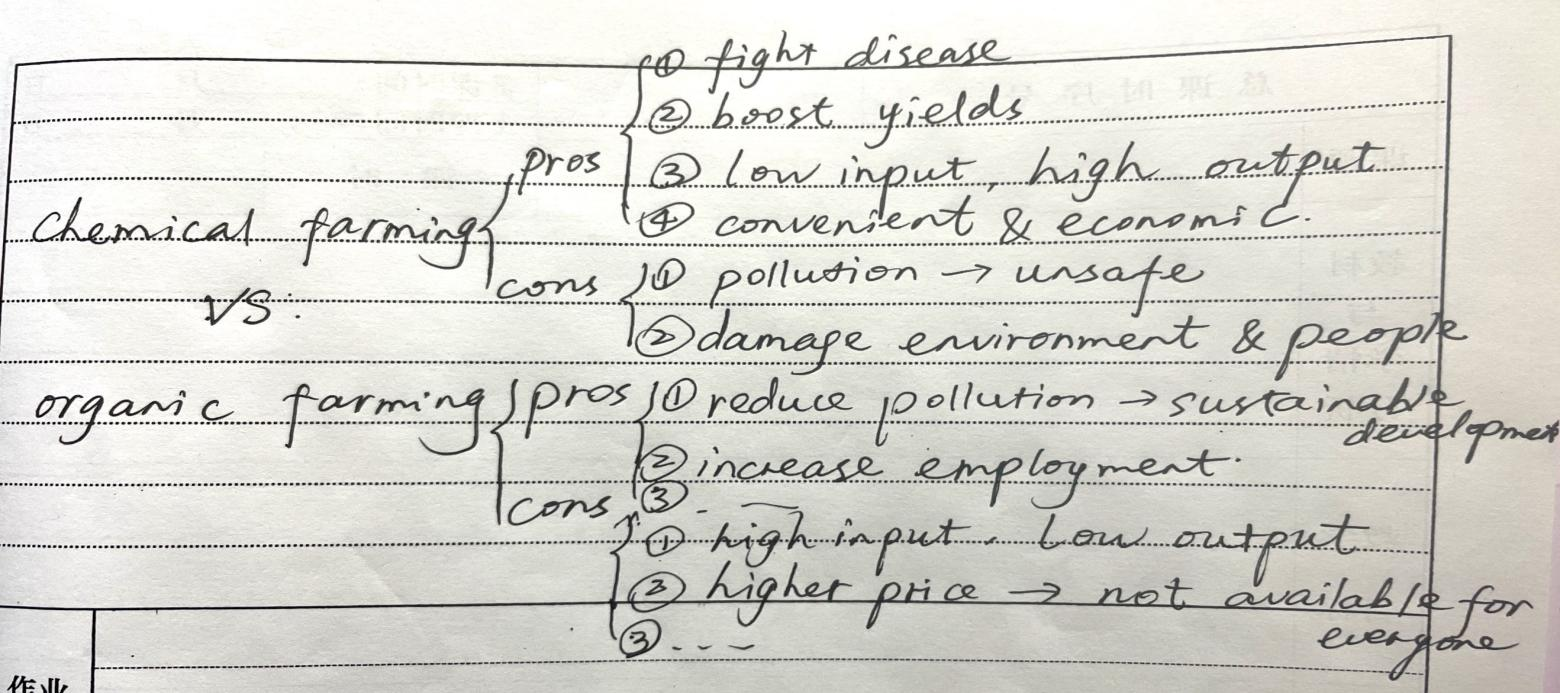 ① fight disease
② boost yields
pros
③ low input, high output
chemical farming
④ convenient & economic.
cons
① pollution → unsafe
vs:
② damage environment & people
organic farming
pros
① reduce pollution → sustainable
development
② increase employment.
cons
③
① high input. low output
② higher price → not available for
everyone
③ ...
作业